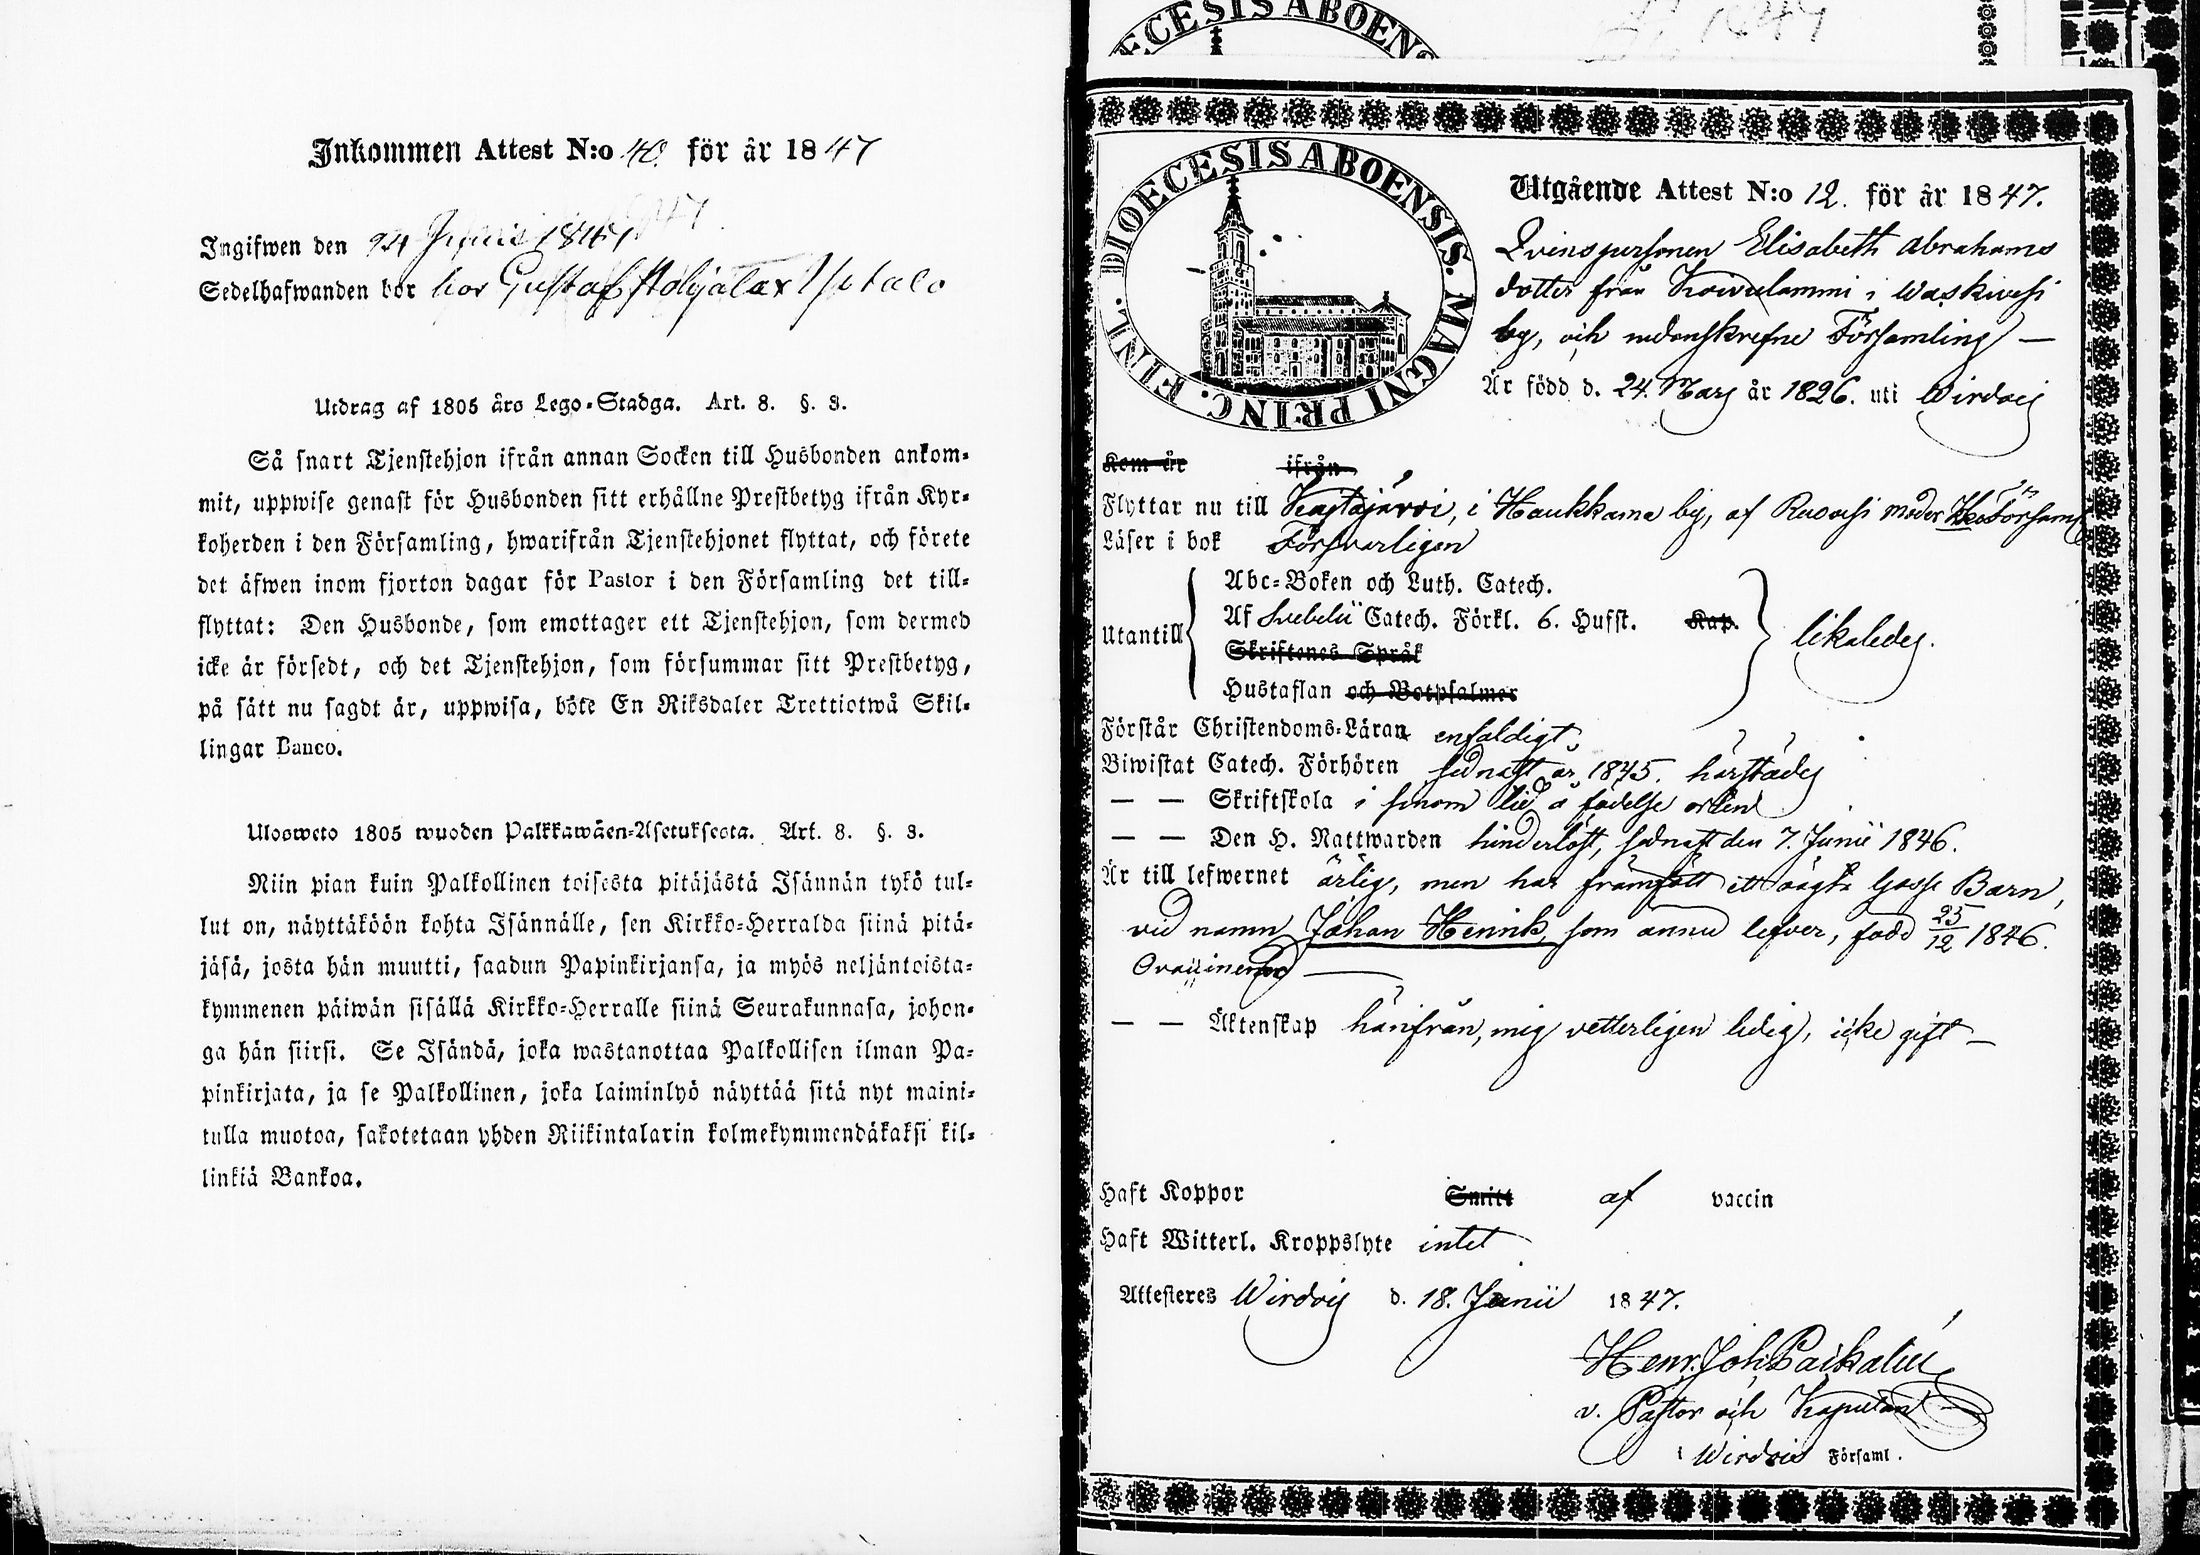 Inkommen Attest N:o 40. för år 1847
Ingifwen den 24 Junii 1847
Sedelhafwanden bor hos Gustaf
Utdrag af 1805 års Lego-Stadga. Art. 8. §. 3.
Så snart Tjenstehjon ifrån annan Socken till Husbonden ankom-
mit, uppwise genast för Husbonden sitt erhållne Prestbetyg ifrån Kyr-
koherden i den Församling, hwarifrån Tjenstehjonet flyttat, och förete
det äfwen inom fjorton dagar för Pastor i den Församling det till-
flyttat: Den Husbonde, som emottager ett Tjenstehjon, som dermed
icke är försedt, och det Tjenstehjon, som försummar sitt Prestbetyg,
på sätt nu sagdt är, uppwisa, böte En Riksdaler Trettiotwå Skil-
lingar Banco.
Ulosweto 1805 wuoden Palkkawäen-Asetuksesta. Art. 8. §. 3.
Niin pian kuin Palkollinen toisesta pitäjästä Isännän tykö tul-
lut on, näyttäköön kohta Isännälle, sen Kirkko-Herralda siinä pitä-
jäsä, josta hän muutti, saadun Papinkirjansa, ja myös neljäntoista-
kymmenen päiwän sisällä Kirkko-Herralle siinä Seurakunnasa, johon-
ga hän siirsi. Se Isändä, joka wastanottaa Palkollisen ilman Pa-
pinkirjata, ja se Palkollinen, joka laiminlyö näyttää sitä nyt maini-
tulla muotoa, sakotetaan yhden Riikintalarin kolmekymmendäkaksi kil-
linkiä Bankoa.
DIOECESIS ABOENS
1847
DIOECESIS ABOENSIS. MAGNI PRINC. FINL.
Utgående Attest N:o 12. för år 1847.
Qvinspersonen Elisabeth Abrahams
dotter från Koivulammi i Waskivesi
by, och nedanskrefne Församling —
Är född d. 24. Mars år 1826. uti Wirdois
Kom år ifrån
Flyttar nu till Kastajärvi, i Haukkama by, af Ruovesi moder Församl
Läser i bok Försvarligen
Utantill
Abc-Boken och Luth. Catech.
Af Svebelii Catech. Förkl. 6. Hufst. Kap.
Skriftenes Språk
Hustaflan och Botpsalmer
likaledes.
Förstår Christendoms-Läran enfaldigt.
Biwistat Catech. Förhören sednast år 1845. härstädes
— — Skriftskola i sinom tid å födelse orten
— — Den H. Nattwarden hinderlöst, sednast den 7. Junii 1846.
Är till lefwernet ärlig, men har framfött ett oägta Gosse Barn,
vid namn Johan Henrik, som ännu lefver, född 25/12 1846.
— — Äktenskap härifrån, mig vetterligen ledig, icke gift —
Haft Koppor Smitt af vaccin
Haft Witterl. Kroppslyte intet
Attesteres Wirdois d. 18. Junii 1847.
Henr. Joh. Paikalin
v. Pastor och Kapellan
i Wirdois Församl.